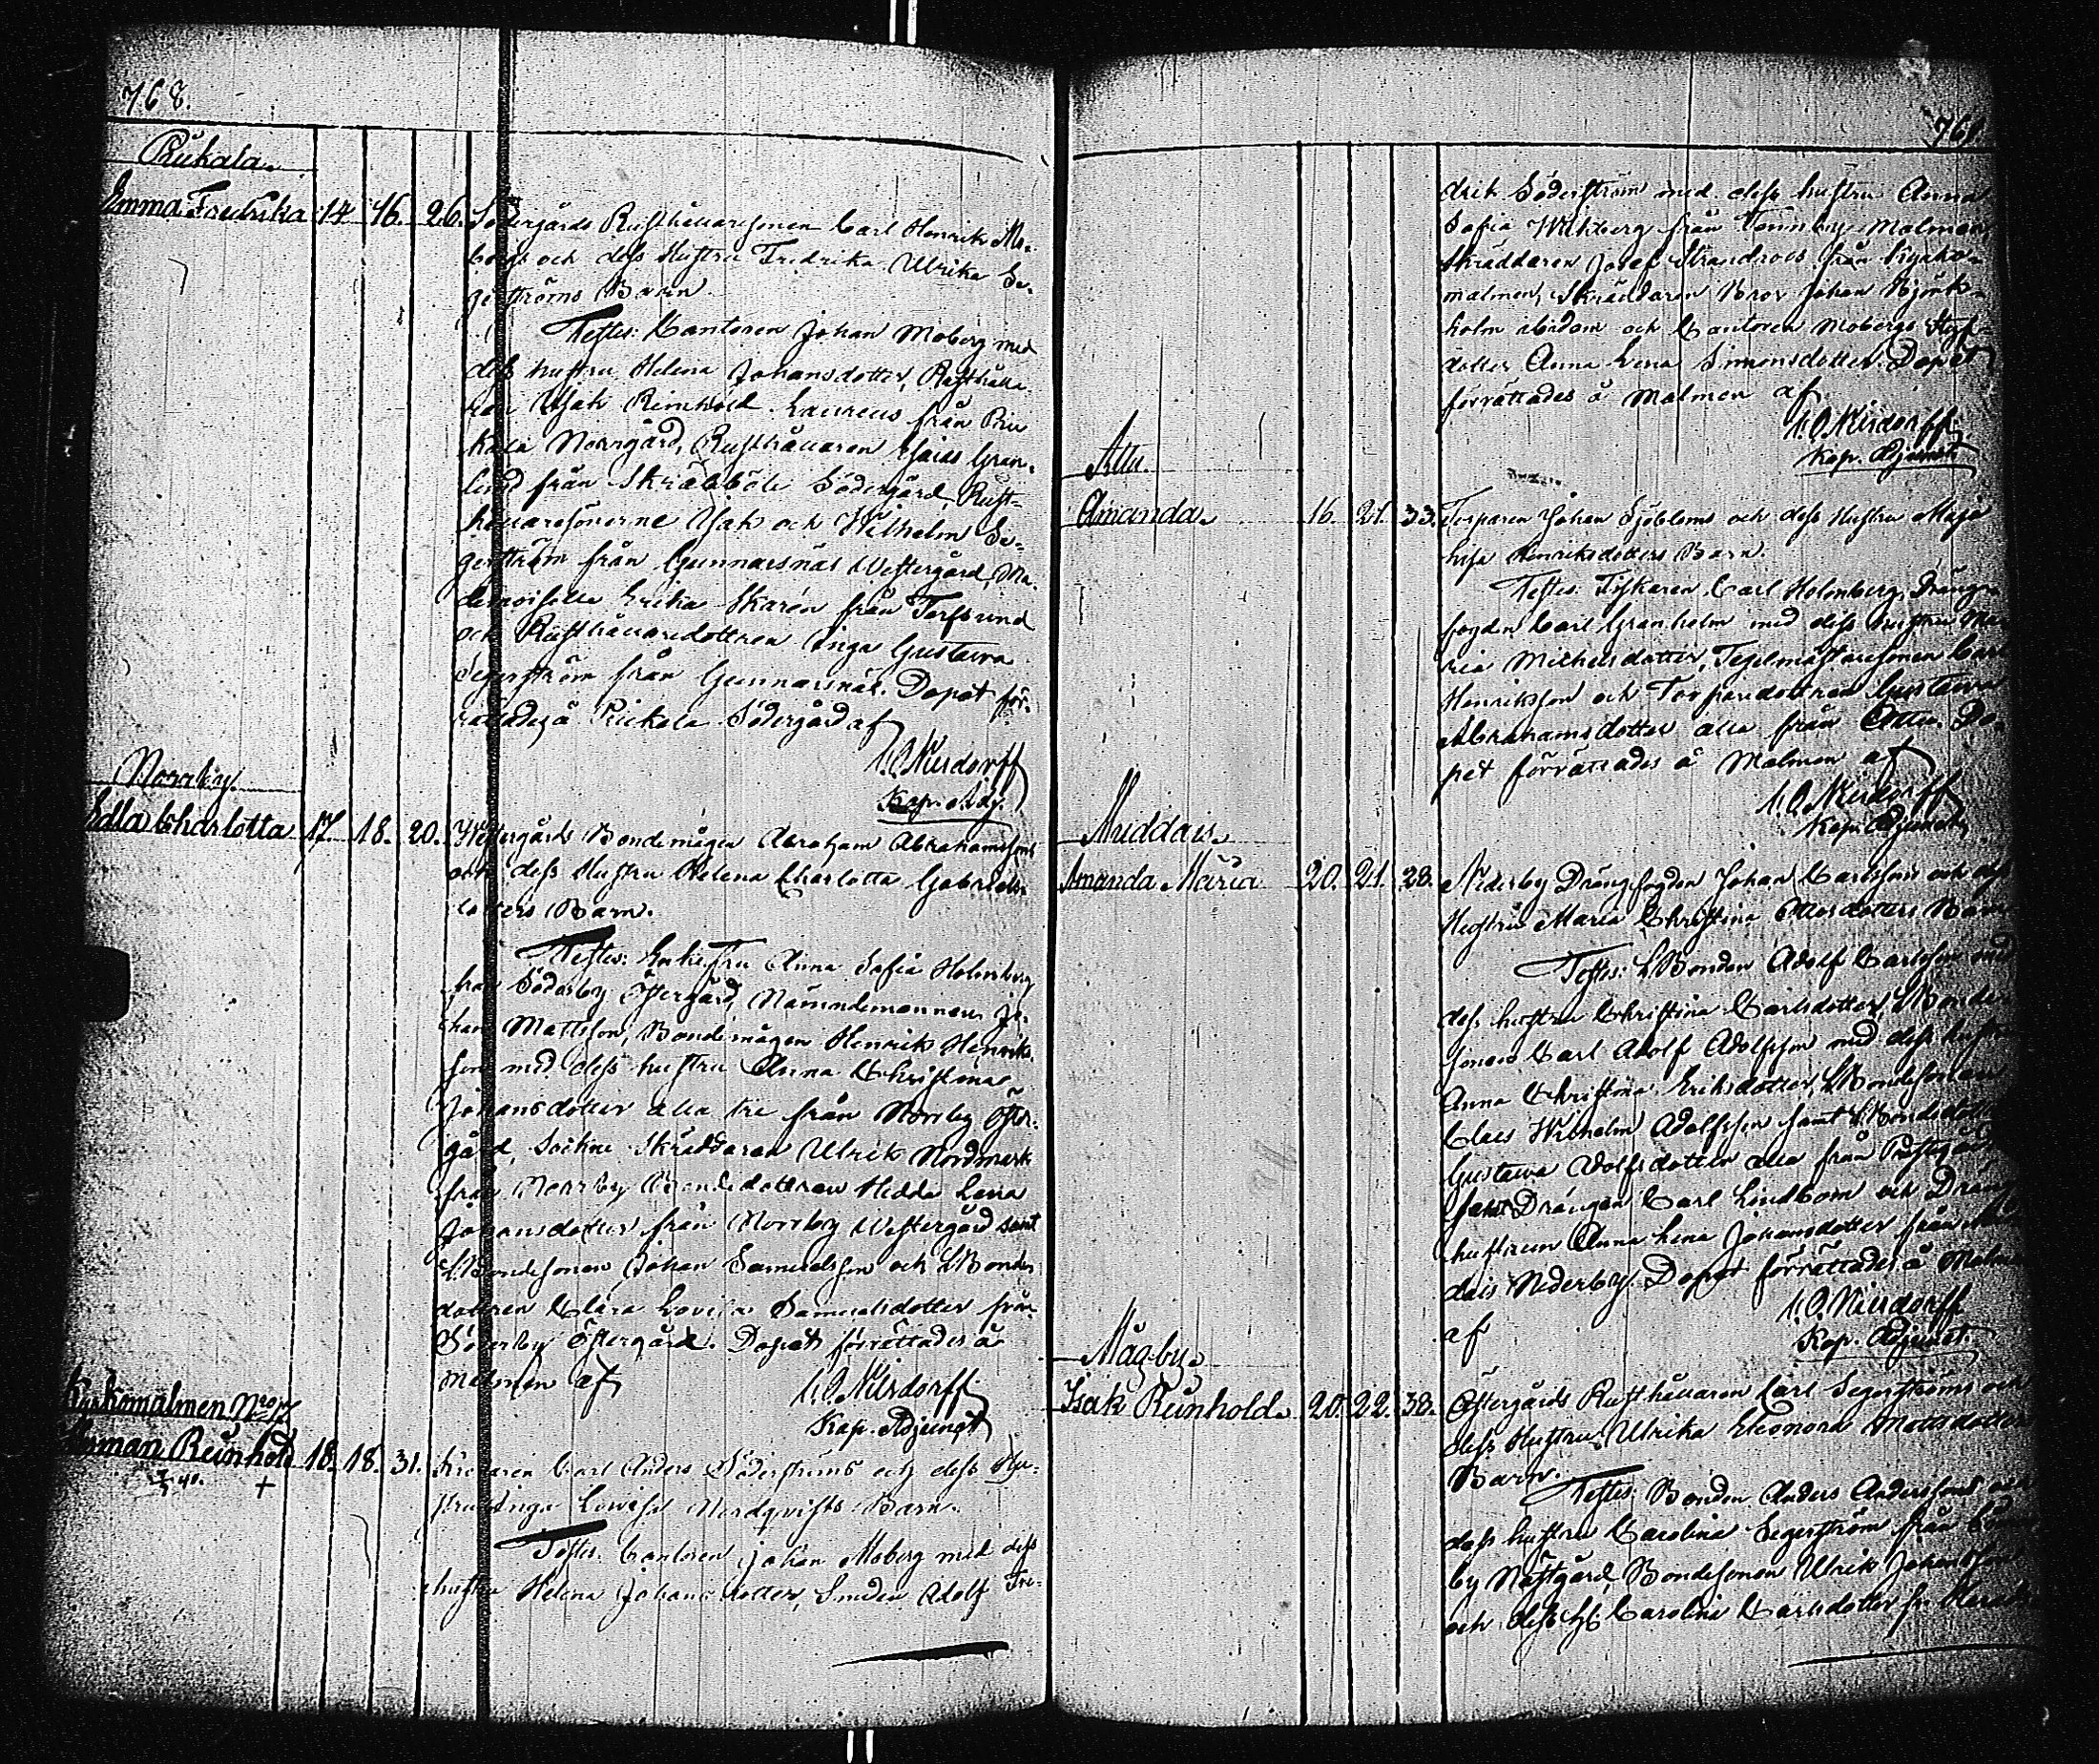 768.
Piukala.
Emma Fredrika 14. 16. 26. Södergårds Rusthållaresonen Carl Henrik Mo-
bergs och dess Hustru Fredrika Ulrika Se-
gerströms Barn
Testes: Cantoren Johan Moberg med
dess hustru Helena Johansdotter, Rusthålla-
ren Isak Reinhold Laureus från Piu
kala Norrgård, Rusthållaren Esaias Gran-
lund från Skräbböle Södergård, Rust-
hållaresönerne Isak och Wilhelm Se-
gerström från Gunnarsnäs Westergård, Ma-
demoiselle Erika Skarén från Torfsund
och Rusthållaredottren Inga Gustava
Segerström från Gunnarsnäs. Dopet för-
rättades å Piukala Södergård af
Kap. Adj.
Norrby.
Edla Charlotta 17. 18. 20. Westergårds Bondemågen Abraham Abrahamssons
och dess Hustru Helena Charlotta Gabriels-
dotters Barn.
Testes: Enkefru Anna Sofia Holmberg
från Söderby Östergård, Nämndemannen Jo-
han Mattsson, Bondemågen Henrik Henriks-
son med dess hustru Anna Christina
Johansdotter alla tre från Norrby Öster-
gård, Sockne Skräddaren Ulrik Nordmark
från Norrby Bondedottren Hedda Lena
Johansdotter från Norrby Westergård samt
Bondesonen Johan Samuelsson och Bonde
dottren Clara Lovisa Samuelsdotter från
Söderby Östergård. Dopet förrättades å
Malmen af
Kap. Adjunct
Kyrkomalmen No 17
Herman Reinhold 18. 18. 31. Carl Anders Söderströms och dess Hu-
stru Inga Lovisa Nordqvists Barn.
+
Testes: Cantoren Johan Moberg med dess
hustru Helena Johansdotter, Smeden Adolf Fre-
769.
drik Söderström med dess hustru Anna
Sofia Wikberg från Malmen
Skräddaren Josef Strandroos från Kyrko-
malmen, Skräddaren Johan Björk-
holm och Cantoren Mobergs Styf-
dotter Anna Lena Simonsdotter. Dopet
förrättades å Malmen af
Kap. Adjunct
Attu.
Amanda. 16. 21. 33. Torparen Johan Sjöbloms och dess Hustru Maja
Lisa Henriksdotters Barn.
Testes: Fiskaren Carl Holmberg, Drängs-
fogden Carl Granholm med dess hustru Ma
ria Michelsdotter, Tegelmästaresonen Carl
Henriksson och Torparedottren Gustava
Abrahamsdotter alla från Attu. Do-
pet förrättades å Malmen af
Kap. Adjunct
Muddais.
Amanda Maria 20. 21. 28. Nederby Drängfogden Johan Carlssons och dess
Hustru Maria Christina Ottosdotters Barn
Testes: Bonden Adolf Carlsson med
dess hustru Christina Carlsdotter, Bonde
sonen Carl Adolf Adolfsson med dess hustru
Anna Christina Eriksdotter, Bondesonen
Claes Wilhelm Adolfsson samt Bondedottren
Gustava Adolfsdotter alla från
samt Drängen Carl Lindbom och Dräng
hustrun Anna Lena Johansdotter från Mud
dais Nederby. Dopet förrättades å Malmen
af
Kap. Adjunct
Mågby.
Isak Reinhold. 20. 22. 38. Östergårds Rusthållaren Carl Segerströms och
dess Hustru Ulrika Eleonora Mattsdotters
Barn.
Testes: Bonden Anders Andersson och
dess hustru Carolina Segerström från
by Nästgård, Bondesonen Ulrik Johansson
och dess H. Carolina Carlsdotter fr.